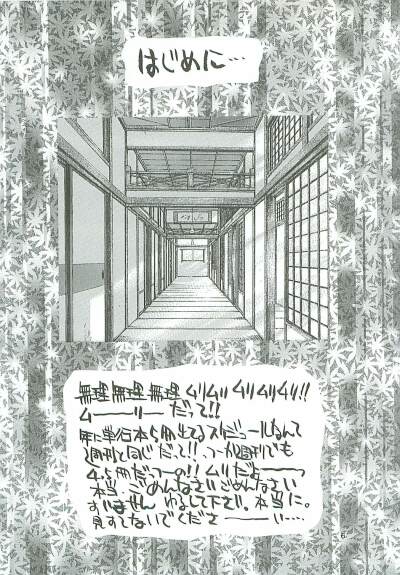 はじめに…
無理 無理 無理 ムリムリ ムリムリムリ!!
ムーーリー だって!!
年に単行本5冊出てるスケジュールなんて
週刊と同じだって!! つーか週刊でも
4.5冊だっつーの!! ムリだよーーっ
本当、ごめんなさいごめんなさい
すいません ゆるして下さい。本当に。
見すてないでくださーーーい…
6